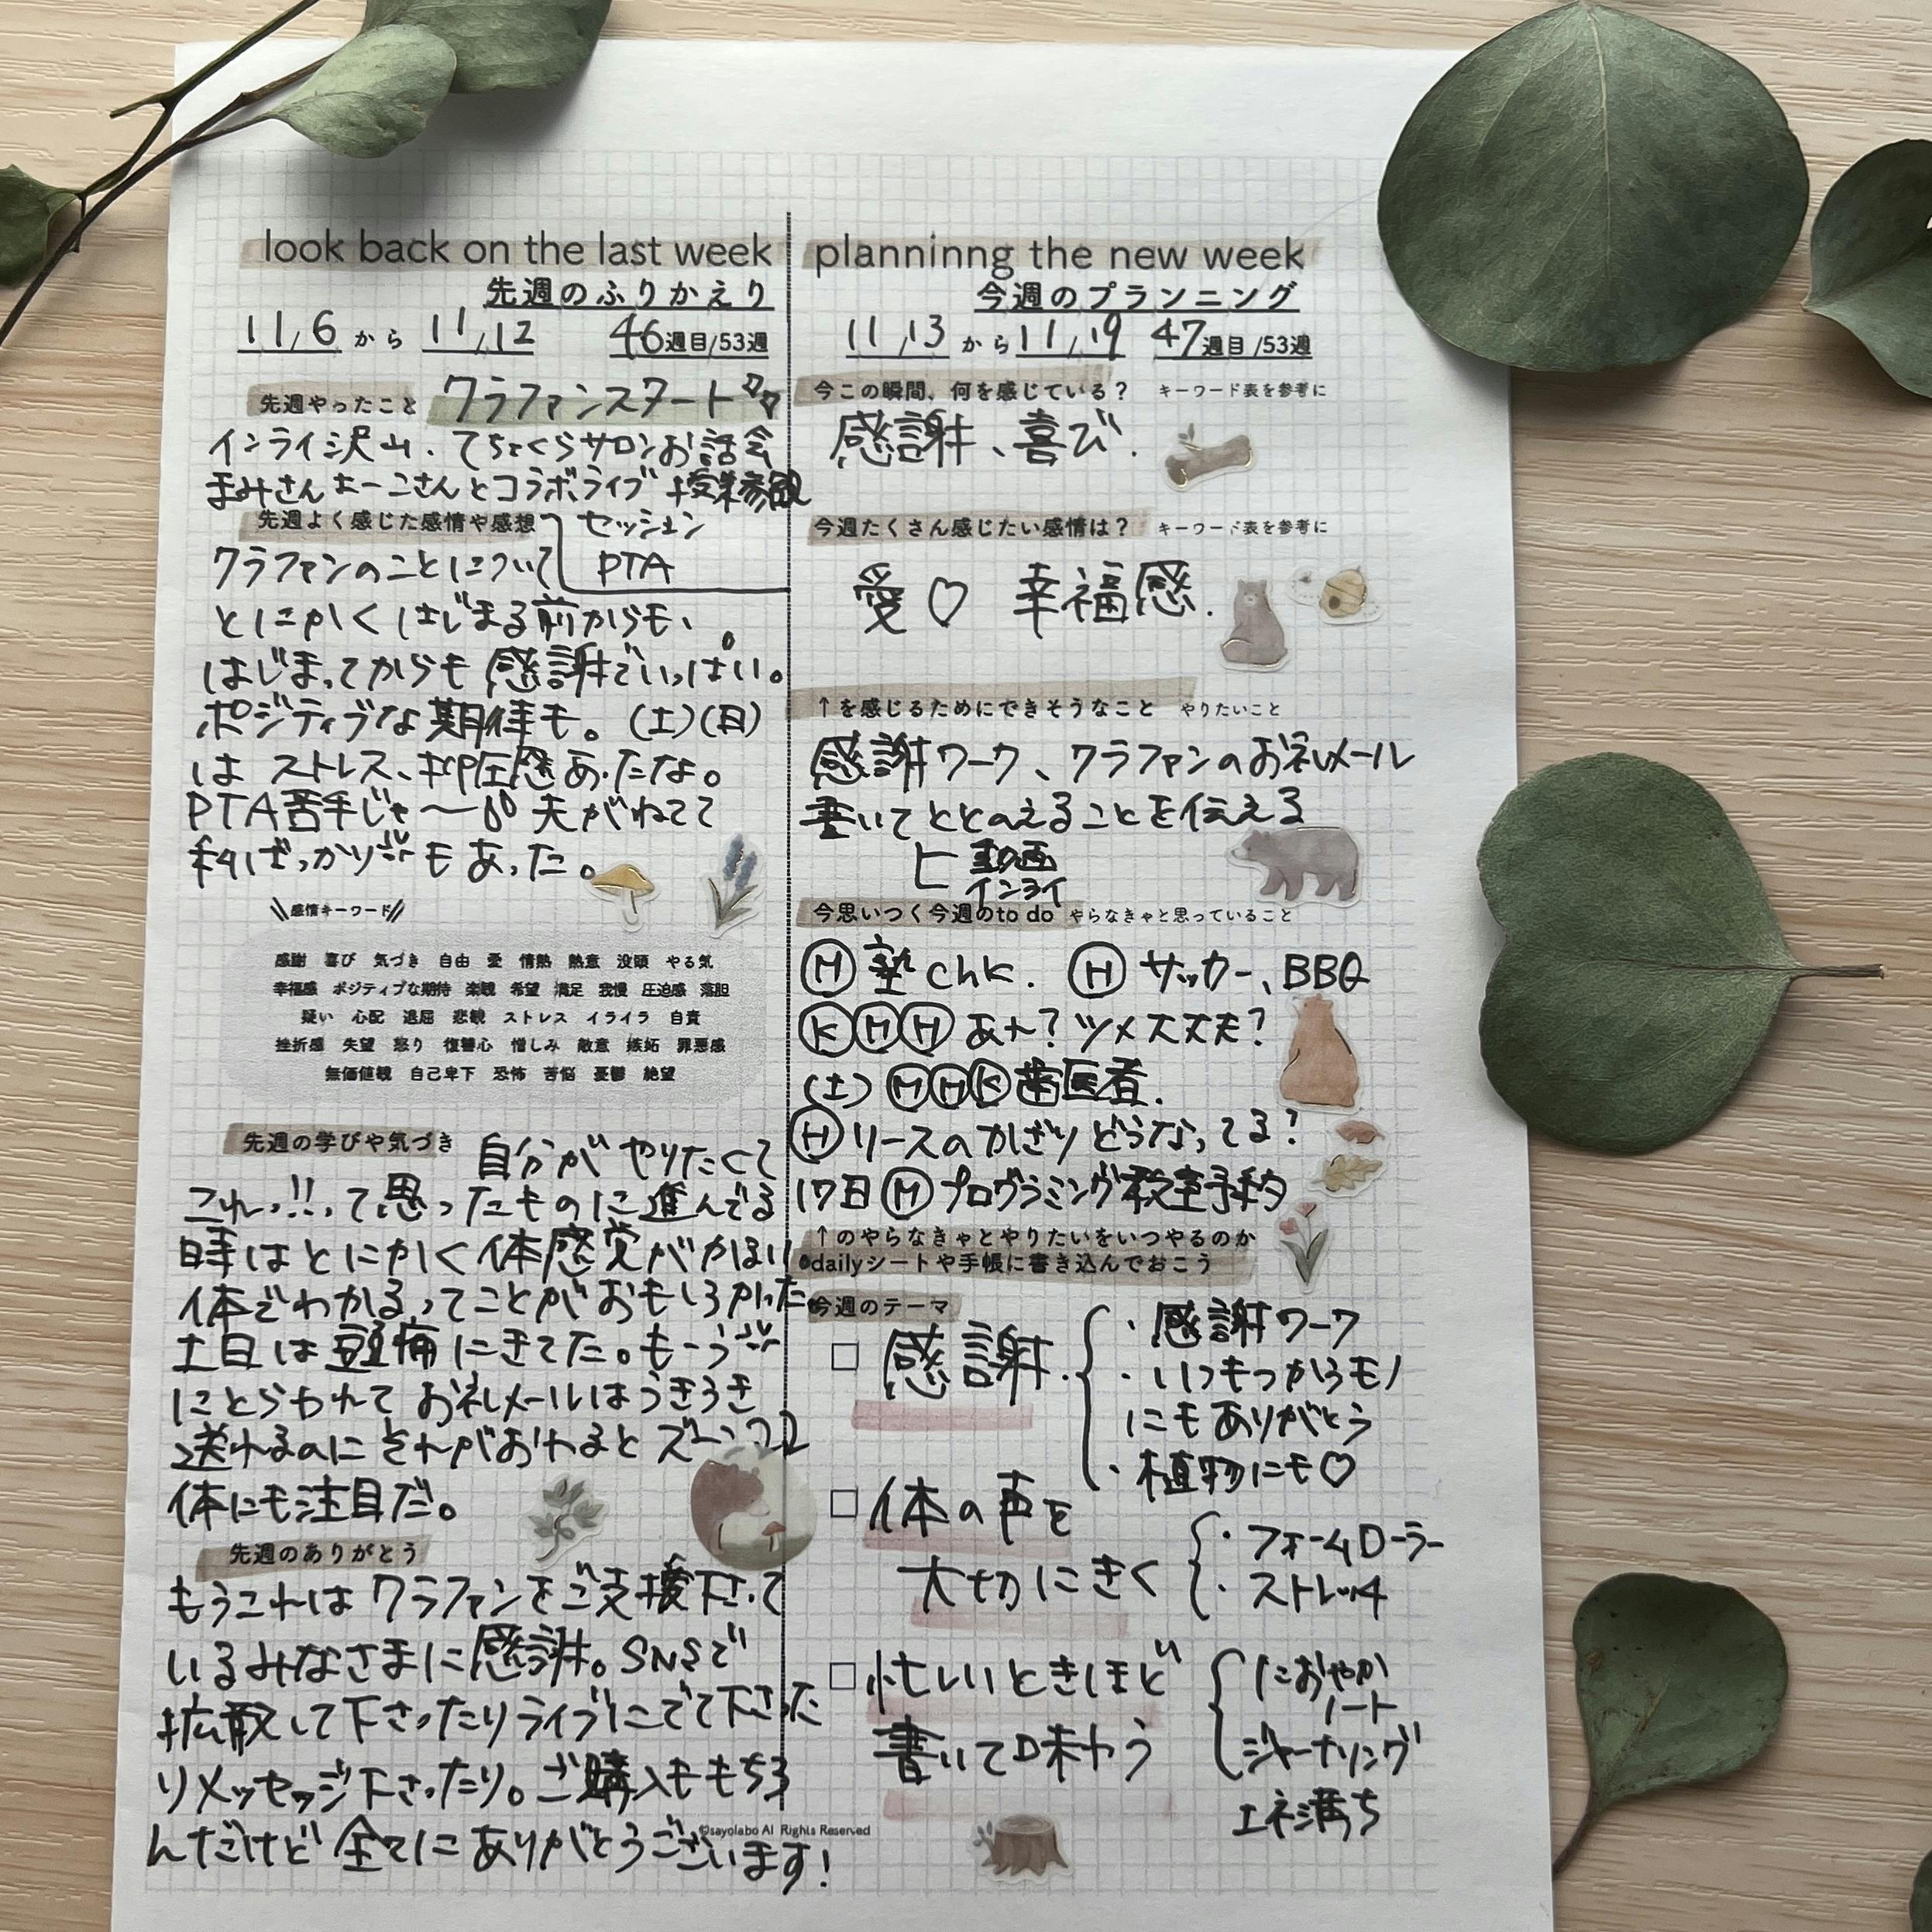 look back on the last week
先週のふりかえり
11/6 から 11/12 46週目/53週
先週やったこと クラファンスタート
インライ沢山、てちょくらサロンお話会
まみさん まーこさんとコラボライブ 授業参観
先週よく感じた感情や感想 セッション
PTA
クラファンのことについて
とにかくはじまる前からも、
はじまってからも感謝でいっぱい。
ポジティブな期待も。(土)(日)
は ストレス、抑圧感あったな。
PTA苦手じゃ〜 夫がねてて
私ばっかり もあった。
\\感情キーワード//
感謝 喜び 気づき 自由 愛 情熱 熱意 没頭 やる気
幸福感 ポジティブな期待 楽観 希望 満足 我慢 圧迫感 落胆
疑い 心配 退屈 悲観 ストレス イライラ 自責
挫折感 失望 怒り 復讐心 憎しみ 敵意 嫉妬 罪悪感
無価値観 自己卑下 恐怖 苦悩 憂鬱 絶望
先週の学びや気づき 自分がやりたくて
これっ!!って思ったものに進んでる
時はとにかく体感覚がかるい
体でわかるってことがおもしろかった。
土日は頭痛にきてた。もーう
にとらわれて お礼メールはうきうき
送れるのに それがおわるとズーン
体にも注目だ。
先週のありがとう
もうこれは クラファンをご支援下さって
いるみなさまに感謝。SNSで
拡散して下さったりライブにでて下さった
りメッセージ下さったり。ご購入ももちろ
んだけど 全てにありがとうございます!
©sayolabo All Rights Reserved
planninng the new week
今週のプランニング
11/13 から 11/19 47週目/53週
今この瞬間、何を感じている? キーワード表を参考に
感謝、喜び.
今週たくさん感じたい感情は? キーワード表を参考に
愛♡ 幸福感.
↑を感じるためにできそうなこと やりたいこと
感謝ワーク、クラファンのお礼メール
書いてととのえることを伝える
動画
インライ
今思いつく今週のto do やらなきゃと思っていること
Ⓜ 塾chk. Ⓗ サッカー、BBQ
ⓀⓂⒽ あと? ツメ大丈夫?
(土) ⓂⒽⓀ歯医者.
Ⓗリースのかざりどうなってる?
17日Ⓜプログラミング教室予約
↑のやらなきゃとやりたいをいつやるのか
dailyシートや手帳に書き込んでおこう
今週のテーマ
□ 感謝.
・感謝ワーク
・いつもつかうモノ
にもありがとう
・植物にも♡
□ 体の声を
大切にきく
・フォームローラー
・ストレッチ
□ 忙しいときほど
書いて味わう
におやか
ノート
ジャーナリング
エネ満ち